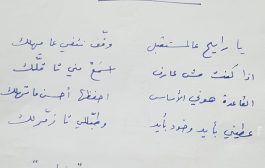 يا رايح عالمستقبل وقّف نتفي عا مهلك
اذا كنت مش عارف اسمع مني تا قلّك
القاعدة هوني الأساس احفظها أحسن ما تهلك
عطيني بأيد وخود بأيد وطبّللي تا زمّرلك